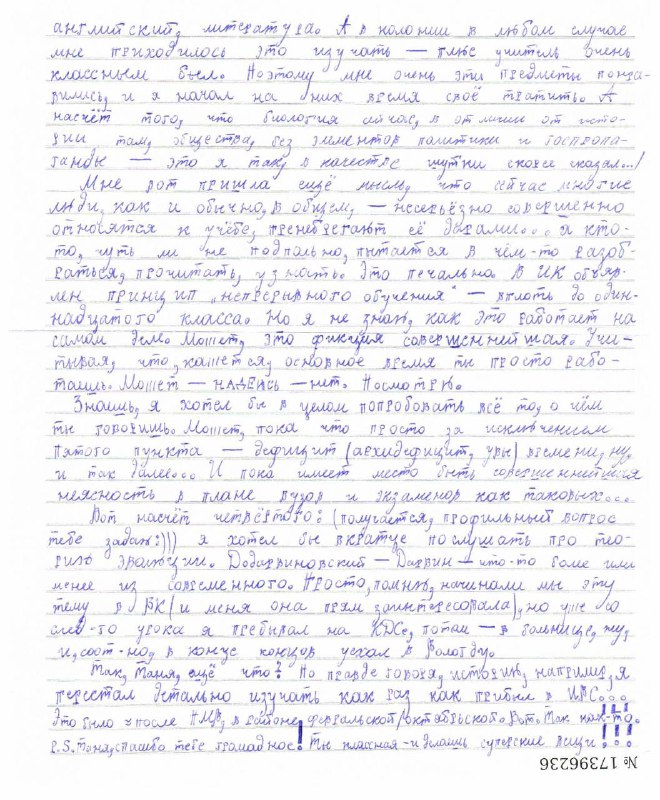 английский, литература. А в колонии в любом случае
мне приходилось это изучать — плюс учитель очень
классным был. Поэтому мне очень эти предметы понра-
вились, и я начал на них время своё тратить. А
насчёт того, что биология сейчас, в отличии от исто-
рии там, общества, без элементов политики и госпропа-
ганды — это я так, в качестве шутки скорее сказал...)
Мне вот пришла ещё мысль, что сейчас многие
люди, как и обычно, в общем, — несерьёзно совершенно
относятся к учёбе, пренебрегают ей дырами... а кто-
то, чуть ли не подпольно, пытается в чём-то разоб-
раться, прочитать, узнать. Это печально. В ИК объяв-
лен принцип „непрерывного обучения" — вплоть до один-
надцатого класса. Но я не знаю, как это работает на
самом деле. Может, это фикция совершеннейшая. Учи-
тывая, что, кажется, основное время ты просто рабо-
таешь. Может — надеюсь — нет. Посмотрю.
Знаешь, я хотел бы в целом попробовать всё то, о чём
ты говоришь. Может, пока что просто за исключением
пятого пункта — дефицит (архидефицит, увы) времени, ну,
и так далее... И пока имеет место быть совершеннейшая
неясность в плане вузов и экзаменов как таковых...
Вот насчёт четвёртого: (получается, профильный вопрос
тебе задаю:))) я хотел бы вкратце послушать про тео-
рию эволюции. Додарвиновский — Дарвин — что-то более или
менее из современного. Просто, помню, начинали мы эту
тему в ВК (и меня она прям заинтересовала), но уже со
след-го урока я пребывал на КДСе, потом — в больнице, ну,
и, соот-но, в конце концов уехал в Вологду.
Так, Таня, ещё что? По правде говоря, историю, например, я
перестал детально изучать как раз как прибыл в ЦВС...
Это было после НМВ, в районе февральской/октябрьской. Вот. Так как-то.
P.S. Таня, спасибо тебе громадное! Ты классная - и делаешь суперские вещи!!!
№ 17396236